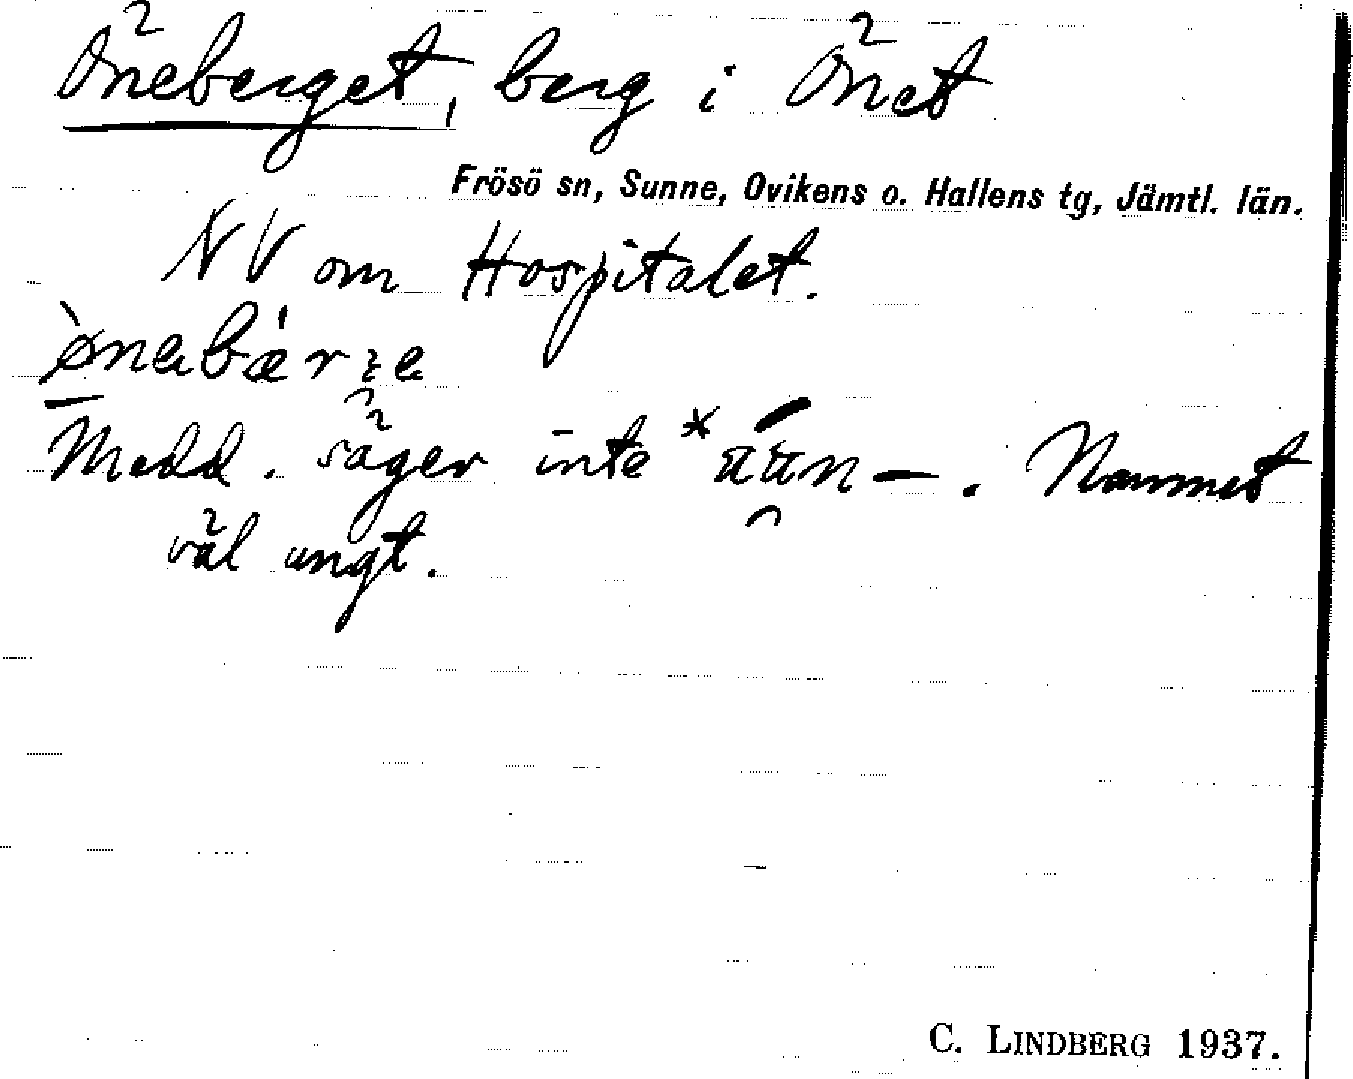 Öneberget, berg i Önet
Frösö sn, Sunne, Ovikens o. Hallens tg, Jämtl. län.
NV om Hospitalet.
Medd. säger inte Namnet
väl ungt.
C. LINDBERG 1937.